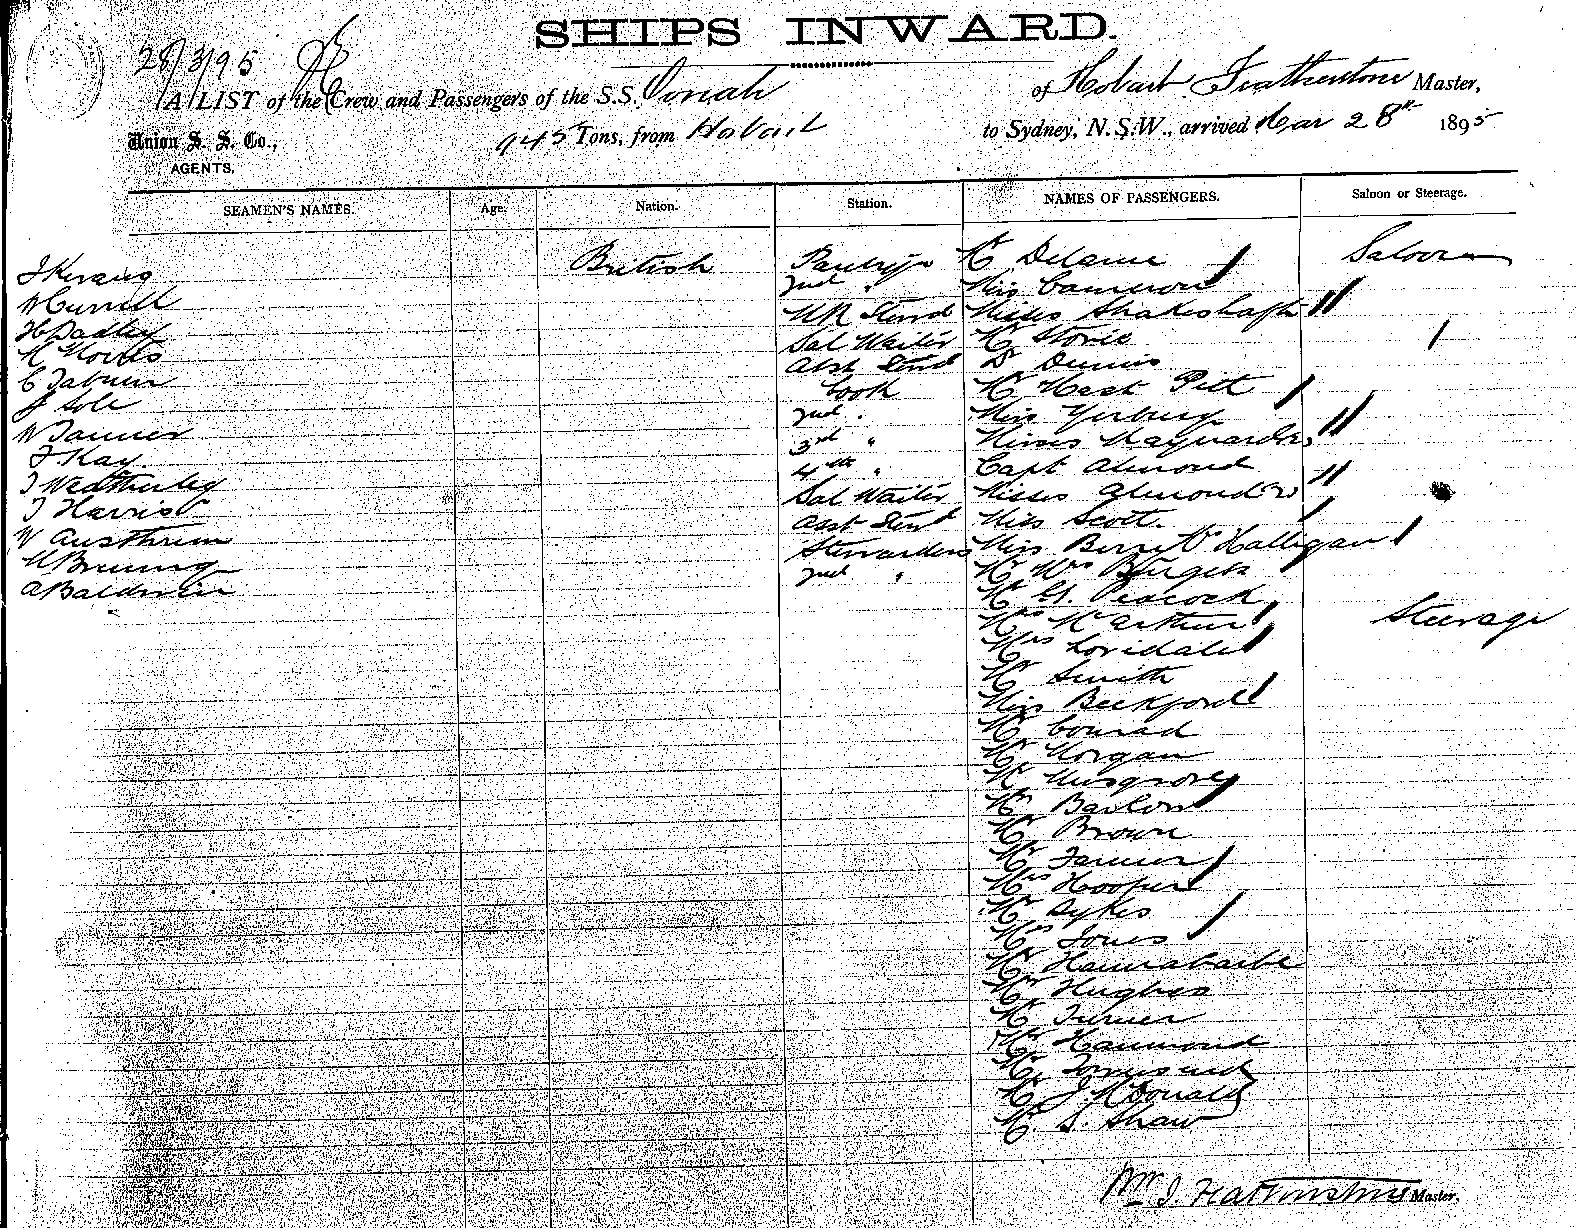 SHIPS INWARD.
28/3/95
A LIST of the Crew and Passengers of the S.S. Oonah of Hobart Featherstone Master,
Union S. S. Co., 945 Tons, from Hobart to Sydney, N.S.W., arrived Mar 28th 1895
AGENTS.
SEAMEN'S NAMES. Age. Nation. Station. NAMES OF PASSENGERS. Saloon or Steerage.
British Mr Saloon
W Currell 2nd " Miss Cameron
H Dadley Stewd Misses Shakeshaft
Sal Waiter Mr Storie
C Tabner Dr Dennis
J Sole Cook Mr West Pitt
W Tanner 2nd " Miss Yerbury
J Kay 3rd " Misses Maynard 2
J Weatherley 4th " Capt Almond
J Harris Sal Waiter Misses Almond 2
W Asst Miss Scott.
Stewardess Miss O'Halligan
A Baldwin 2nd " Mr Wm Burgess
Mr G. Peacock
Mrs McArthur Steerage
Mrs
Mr Smith
Miss Beckford
Mr Conrad
Mr Morgan
Mr Musgrove
Mr
Mr Brown
Mr
Mrs Hooper
Mr Dykes
Mrs Jones
Mr
Mr Hughes
Mr Turner
Mr Hammond
Mr
Mr J. McDonald
Mr S. Shaw
Wm J. Featherstone Master.